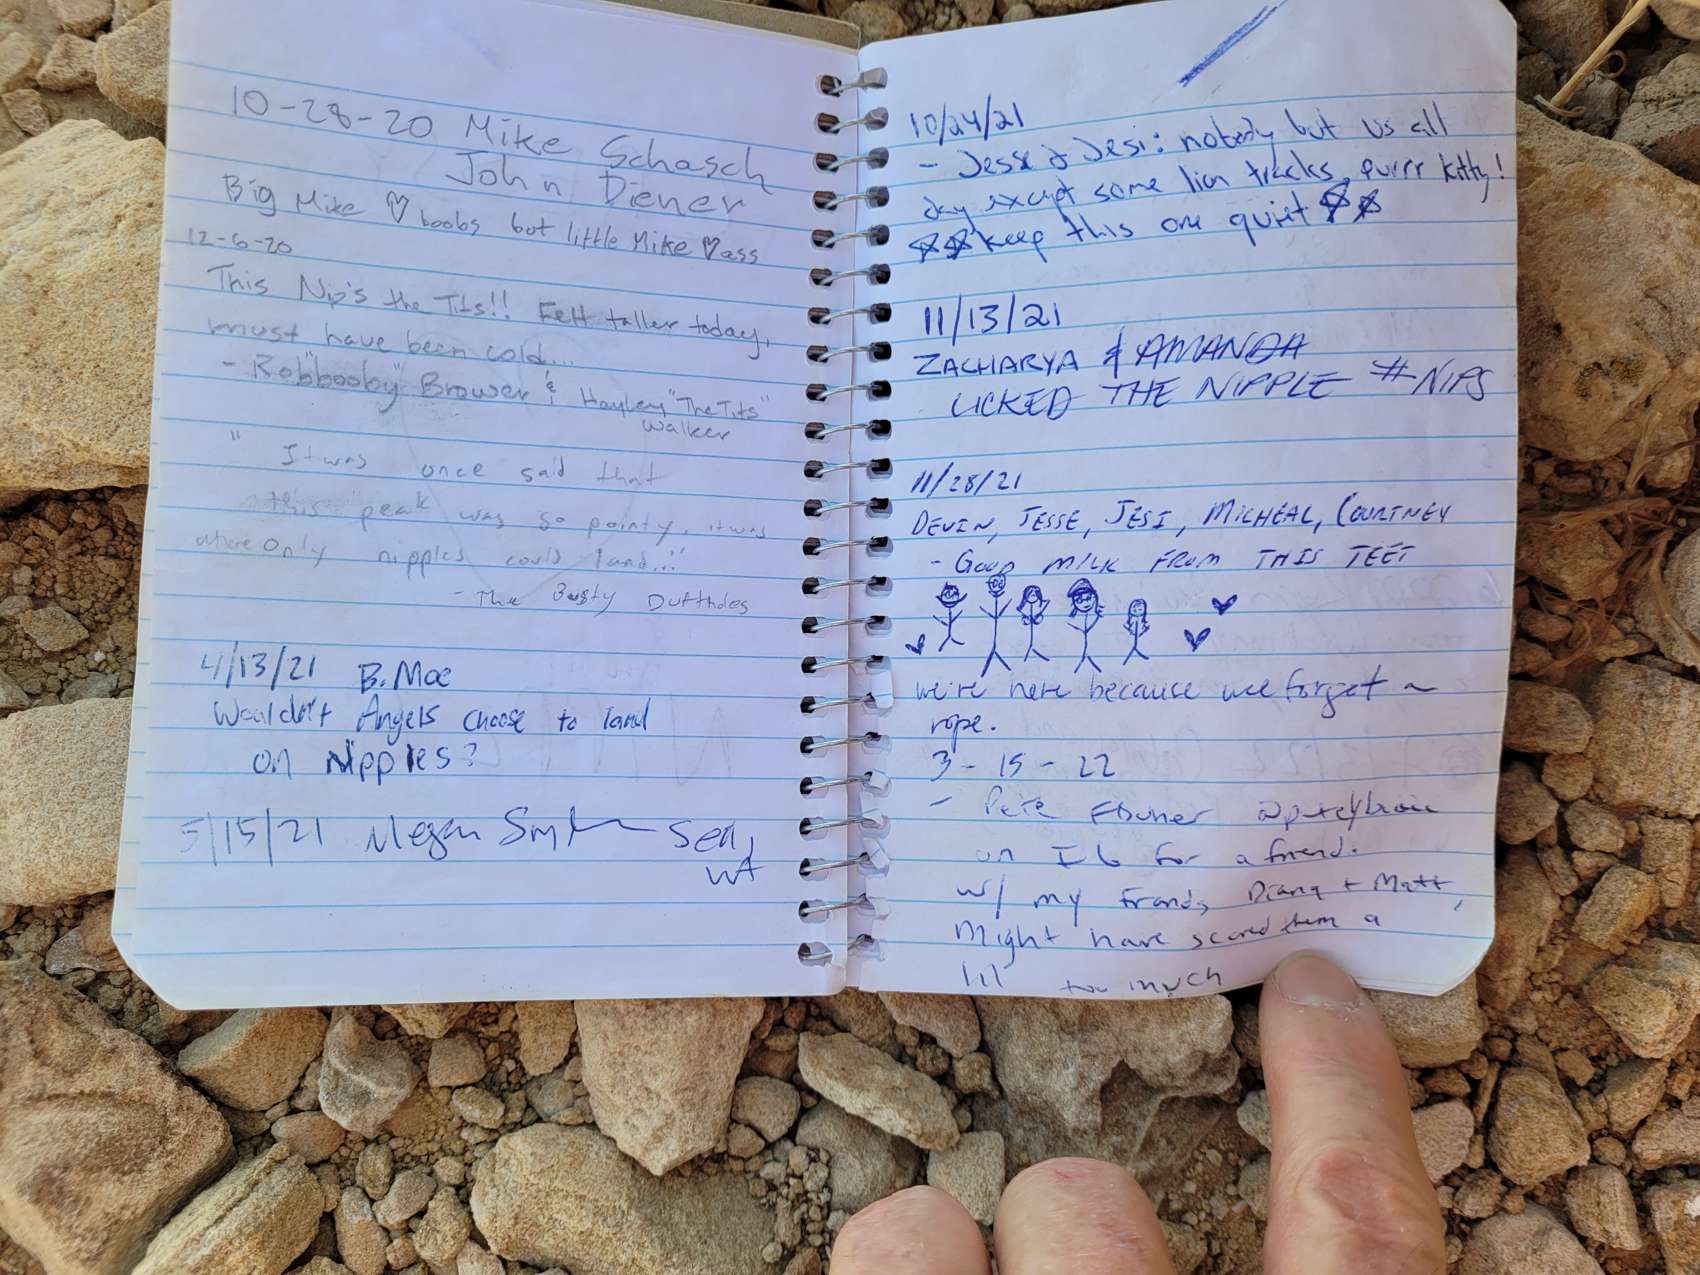 10-28-20 Mike Schasch
John Diener
Big Mike ♡ boobs but little Mike ♡ ass
12-6-20
This Nip's the Tits!! Felt taller today,
must have been cold...
- Rob "booby" Brower & Hayley "The Tits"
Walker
" It was once said that
this peak was so pointy, it was
where only nipples could land..."
- The Busty Duffholes
4/13/21 B. Moe
Wouldn't Angels choose to land
on Nipples?
5/15/21 Megan
10/24/21
- Jesse & Jesi: nobody but us all
day except some lion tracks, purrr kitty!
☆☆ keep this one quiet ☆☆
11/13/21
ZACHARYA & AMANDA
LICKED THE NIPPLE #NIPS
11/28/21
DEVIN, JESSE, JESI, MICHEAL, COURTNEY
- GOOD MILK FROM THIS TEET
we're here because we forgot a
rope.
3-15-22
- Pete
on IG for a friend.
w/ my friends Diana + Matt,
Might have scared them a
lil too much